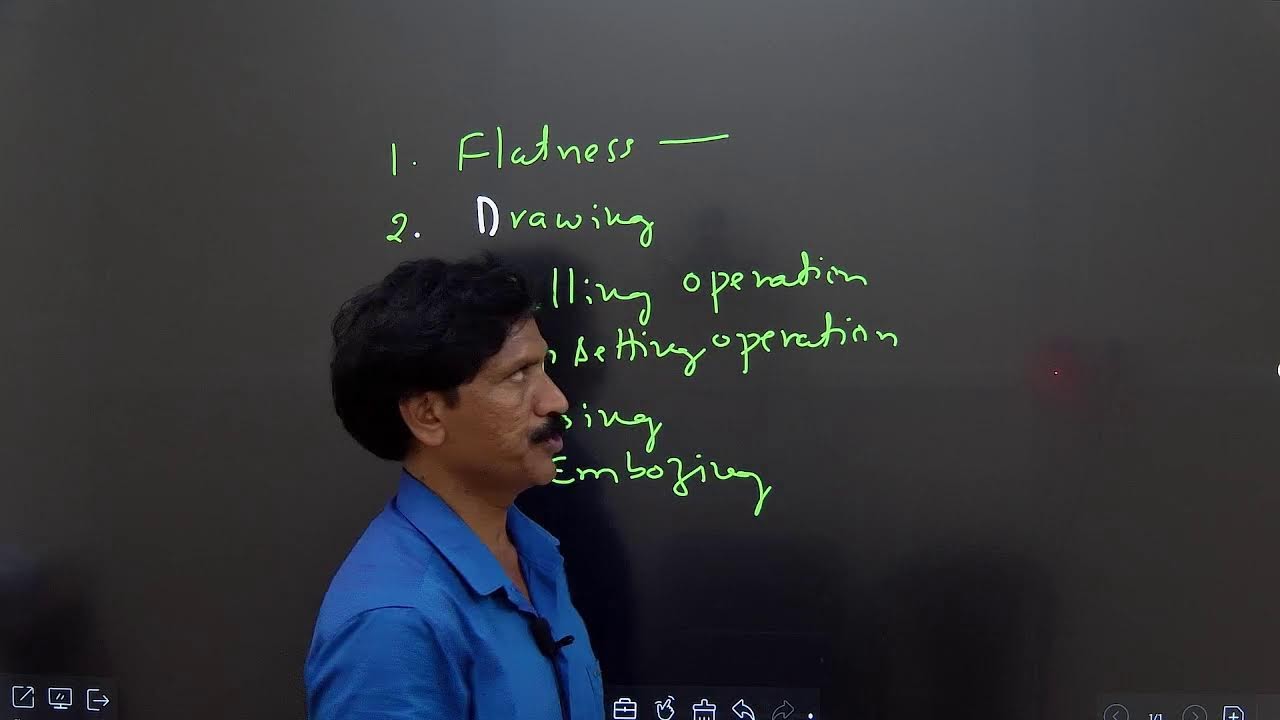 1. Flatness —
2. Drawing
lling operation
setting operation
sing
Embozing
1/1